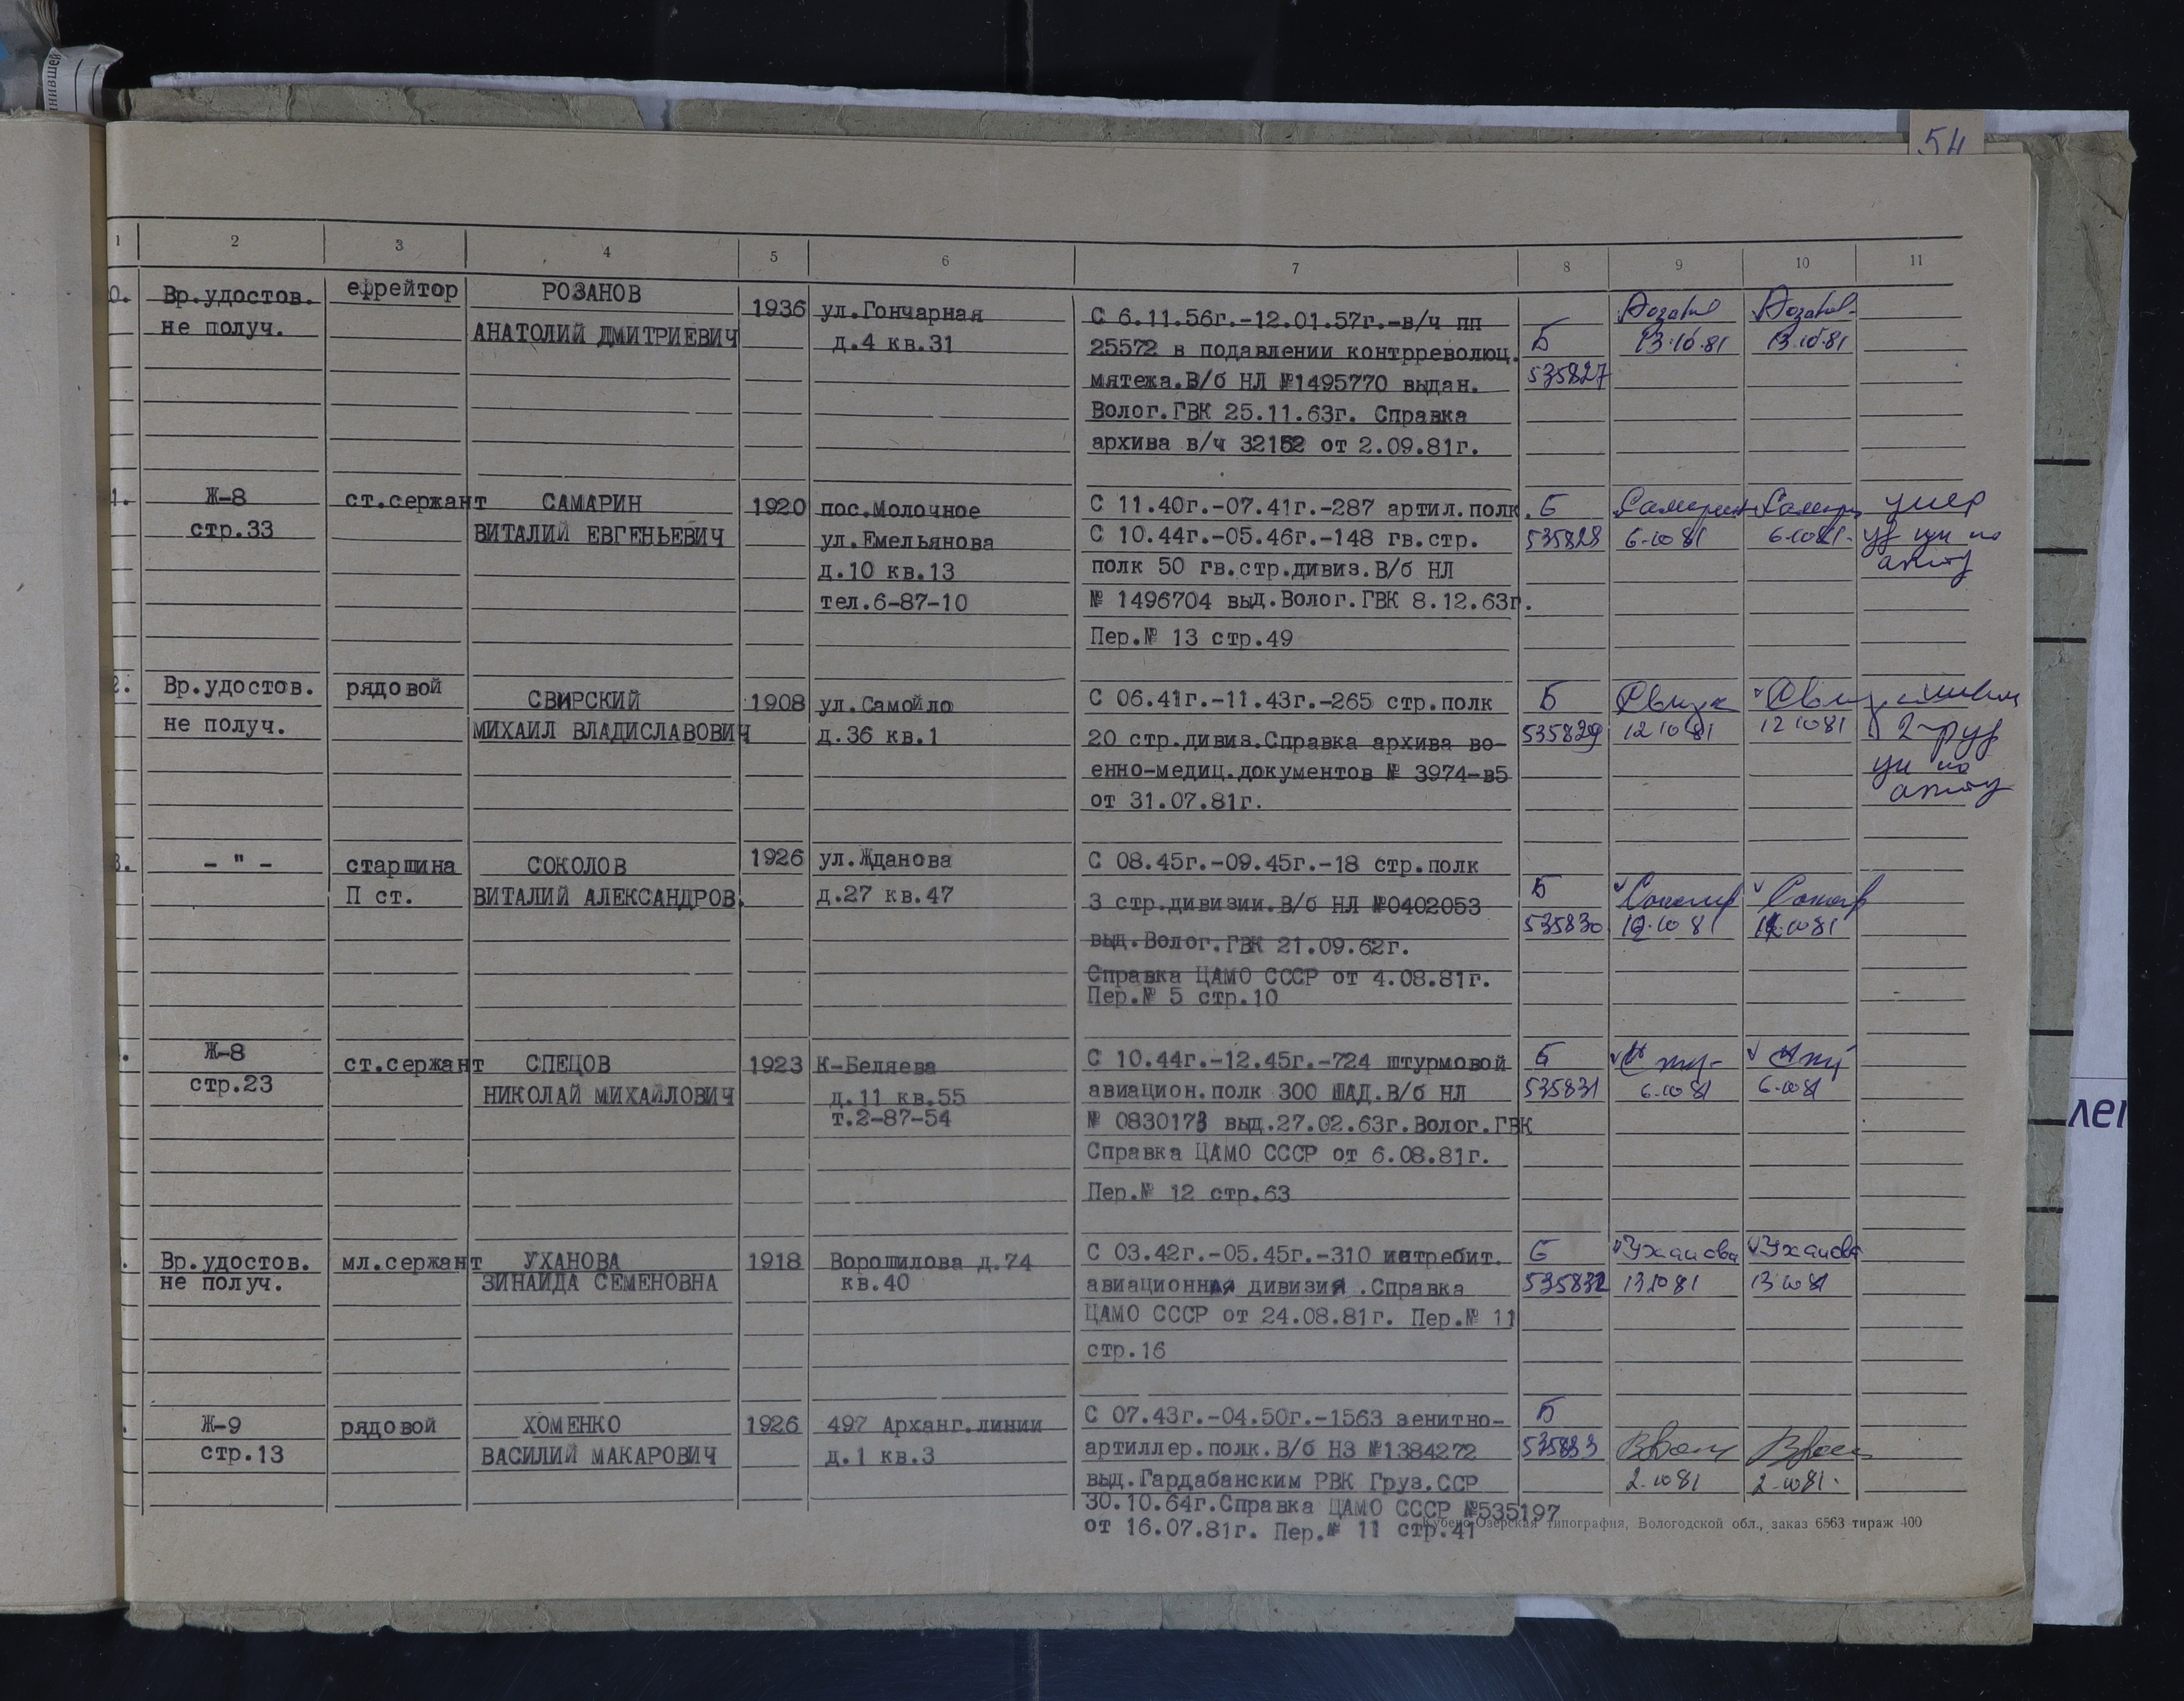 54
1 2 3 4 5 6 7 8 9 10 11
0. Вр.удостов.
не получ.
ефрейтор
РОЗАНОВ
АНАТОЛИЙ ДМИТРИЕВИЧ
1936
ул.Гончарная
д.4 кв.31
С 6.11.56г.-12.01.57г.-в/ч пп
25572 в подавлении контрреволюц.
мятежа.В/б НЛ №1495770 выдан.
Волог.ГВК 25.11.63г. Справка
архива в/ч 32152 от 2.09.81г.
Б
535827
13.10.81
13.10.81
1. Ж-8
стр.33
ст.сержант
САМАРИН
ВИТАЛИЙ ЕВГЕНЬЕВИЧ
1920
пос.Молочное
ул.Емельянова
д.10 кв.13
тел.6-87-10
С 11.40г.-07.41г.-287 артил.полк.
С 10.44г.-05.46г.-148 гв.стр.
полк 50 гв.стр.дивиз.В/б НЛ
№ 1496704 выд.Волог.ГВК 8.12.63г.
Пер.№ 13 стр.49
Б
535828
6.10 81
6.10 81.
умер
2. Вр.удостов.
не получ.
рядовой
СВИРСКИЙ
МИХАИЛ ВЛАДИСЛАВОВИЧ
1908
ул.Самойло
д.36 кв.1
С 06.41г.-11.43г.-265 стр.полк
20 стр.дивиз.Справка архива во-
енно-медиц.документов № 3974-в5
от 31.07.81г.
Б
535829
12 10 81
12 10 81
3. - " -
старшина
П ст.
СОКОЛОВ
ВИТАЛИЙ АЛЕКСАНДРОВ.
1926
ул.Жданова
д.27 кв.47
С 08.45г.-09.45г.-18 стр.полк
3 стр.дивизии.В/б НЛ №0402053
выд.Волог.ГВК 21.09.62г.
Справка ЦАМО СССР от 4.08.81г.
Пер.№ 5 стр.10
Б
535830
. Ж-8
стр.23
ст.сержант
СПЕЦОВ
НИКОЛАЙ МИХАЙЛОВИЧ
1923
К-Беляева
д.11 кв.55
т.2-87-54
С 10.44г.-12.45г.-724 штурмовой
авиацион.полк 300 ШАД.В/б НЛ
№ 0830173 выд.27.02.63г.Волог.ГВК
Справка ЦАМО СССР от 6.08.81г.
Пер.№ 12 стр.63
Б
535831
6.10 81
6.10 81
. Вр.удостов.
не получ.
мл.сержант
УХАНОВА
ЗИНАИДА СЕМЕНОВНА
1918
Ворошилова д.74
кв.40
С 03.42г.-05.45г.-310 истребит.
авиационная дивизия .Справка
ЦАМО СССР от 24.08.81г. Пер.№ 11
стр.16
Б
535832
Уханова
13.10 81
Уханова
13.10 81
. Ж-9
стр.13
рядовой
ХОМЕНКО
ВАСИЛИЙ МАКАРОВИЧ
1926
497 Арханг.линии
д.1 кв.3
С 07.43г.-04.50г.-1563 зенитно-
артиллер.полк.В/б НЗ №1384272
выд.Гардабанским РВК Груз.ССР
30.10.64г.Справка ЦАМО СССР №535197
от 16.07.81г. Пер.№ 11 стр.41
Б
535833
2.10 81
2.10 81.
Кубено-Озерская типография, Вологодской обл., заказ 6563 тираж 400